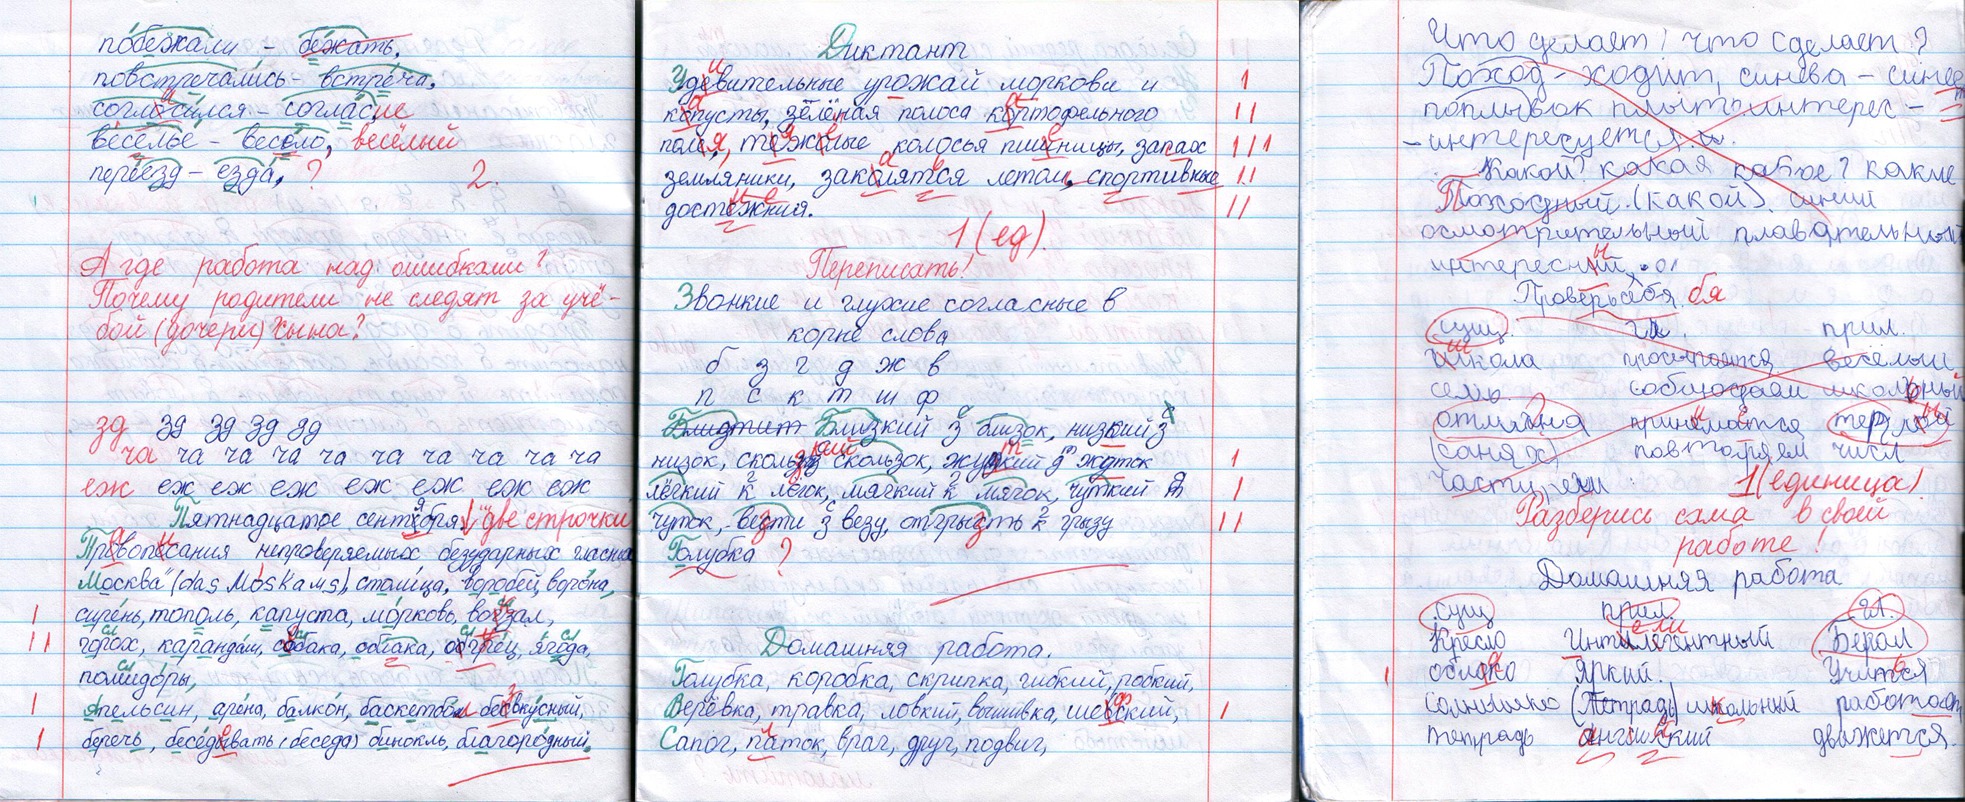 побежали - бежать,
повстречались - встреча,
согласился - согласие
веселье - весело, весёлый
переезд - езда, ? 2
А где работа над ошибками?
Почему родители не следят за учё-
бой (дочери) сына?
зд зд зд зд зд
ча ча ча ча ча ча ча ча ча ча
еж еж еж еж еж еж еж еж
Пятнадцатое сентября. две строчки
Правописания непроверяемых безударных гласных
Москва (das Moskaus), столица, воробей, ворона,
сирень, тополь, капуста, морковь, вокзал,
горох, карандаш, собака, огурец, ягода,
помидоры,
Апельсин, арена, балкон, баскетбол
беречь, беседовать (беседа) бинокль, благородный.
Диктант
Удевительные урожай моркови и
копусты, зелёная полоса кортофельного
поля, колосья пшеницы, запах
земляники, закалятся летом, спортивные
достежния.
1 (ед).
Переписать!
Звонкие и глухие согласные в
корне слова
б з г д ж в
п с к т ш ф
Близкий з близок, низкий з
низок, скользок, жуткий
лёгкий к лёгок, мягкий к мягок, чуткий
чуток, везти з везу, отгрызть грызу
Голубка ?
Домашняя работа.
Голубка, коробка, скрипка, гибкий, робкий,
Верёвка, травка, ловкий, вышивка,
Сапог, враг, друг, подвиг,
Что делает? что сделает?
Поход - ходит, синева - синеет
поплывок интерес -
- интересуется.
Какой? какая какое? какие
Походный (какой). синий
осмотрительный плавательный
интересный,
Проверь себя. бя
сущ. гл. прил.
школа просыпаются весёлый
семь. соблюдаем школьный
принемается
(санях) повторяем числ
1 (единица).
Разберись сама в своей
работе!
Домашняя работа
сущ прил. гл.
Кресло Интилегентный Бегал
облако Яркий. Учиться
солнышко (Тетрадь) школьный работает
тетрадь английский движется.